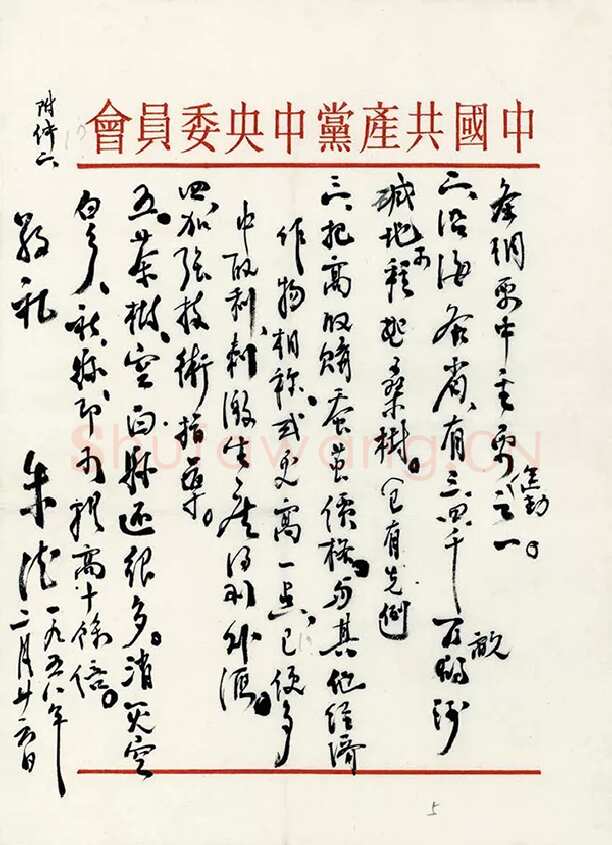 中國共產黨中央委員會
綱要中主要之一。
二、沿海各省、有三四千万畝沙
碱地可種桑樹。已有先例
三、提高收購蚕茧價格、与其他經濟
作物相称或更高一点、已便多
中取利、刺激生産得到外滙。
四、加强技術指導。
五、茶樹、空白縣还很多。消灭空
白乡、社、縣即可提高十餘倍。
敬礼
朱德
一九五八年
二月廿日
附件六
5
Shufawang.CN